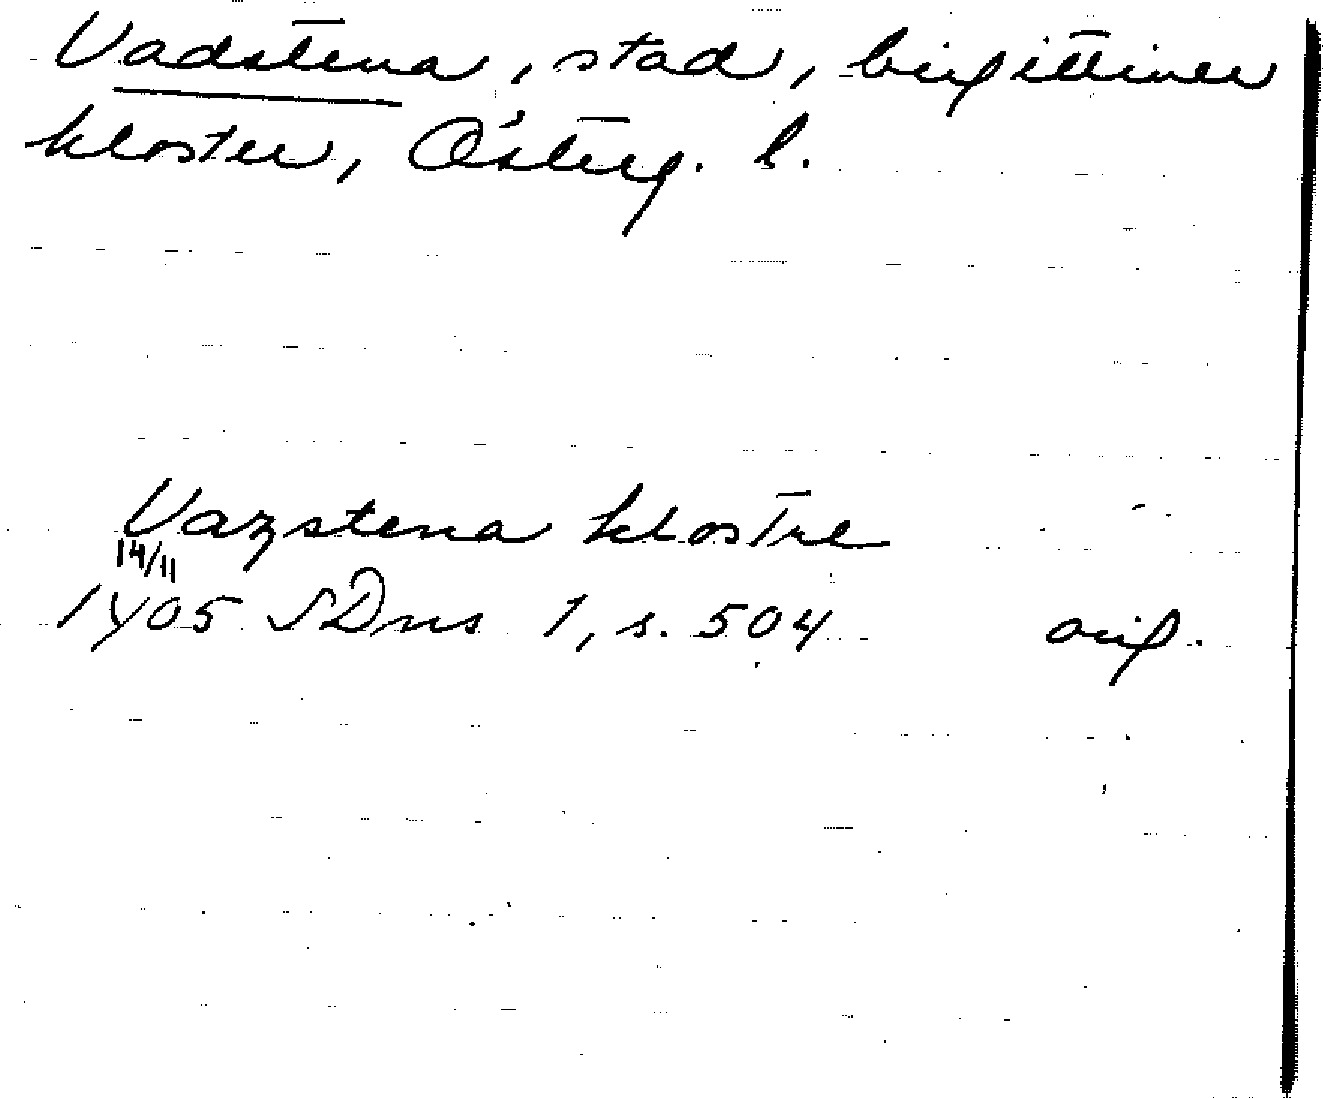 Vadstena, stad, birgittiner
kloster, Österg. l.
Vazstena klostre
14/11
1405 SDns 1, s. 504 orig.